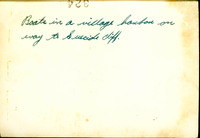 324
Boats in a village harbor on
way to Suicide Cliff.